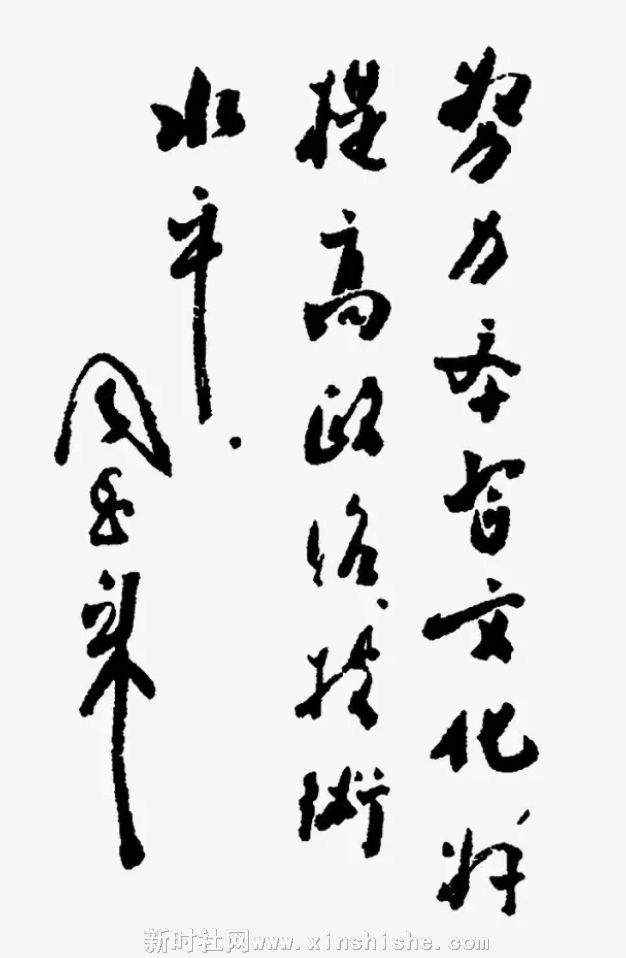 努力学習文化，好
提高政治、技術
水平.
周恩来
新时社网www.xinshishe.com